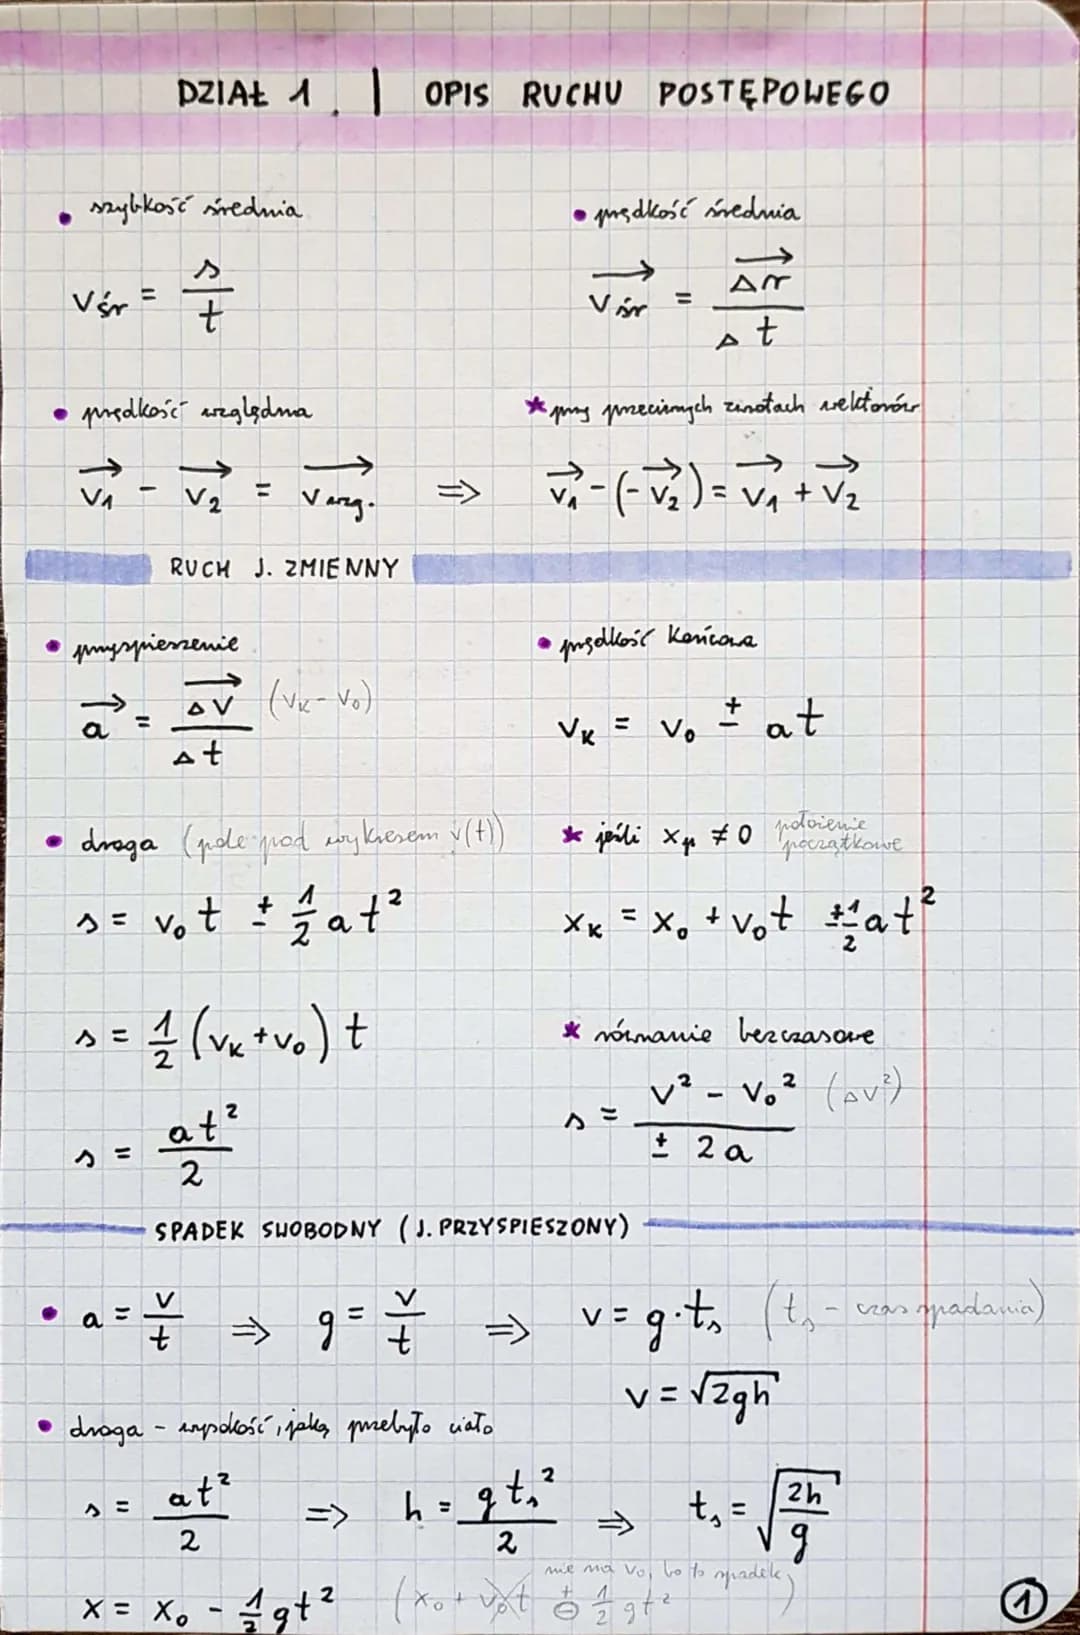 DZIAŁ 1. | OPIS RUCHU POSTĘPOWEGO
• szybkość średnia
vśr = s/t
• prędkość średnia
v⃗śr = Δr⃗/Δt
• prędkość względna
v⃗₁ - v⃗₂ = v⃗wzg. ⇒
* przy przeciwnych zwrotach wektorów
v⃗₁ - (-v⃗₂) = v⃗₁ + v⃗₂
RUCH J. ZMIENNY
• przyspieszenie
a⃗ = Δv⃗/Δt (vK - v₀)
• prędkość końcowa
vK = v₀ ± at
• droga (pole pod wykresem v(t))
s = v₀t ± 1/2 at²
s = 1/2 (vK + v₀) t
s = at²/2
* jeśli xp ≠ 0 położenie początkowe
xK = x₀ + v₀t ± 1/2 at²
* równanie bezczasowe
s = v² - v₀² / ± 2a (Δv²)
SPADEK SWOBODNY (J. PRZYSPIESZONY)
• a = v/t ⇒ g = v/t ⇒ v = g·ts (ts - czas spadania)
v = √2gh
• droga - wysokość, jaką przebyło ciało
s = at²/2 ⇒ h = gts²/2 ⇒ ts = √2h/g
nie ma v₀, bo to spadek
x = x₀ - 1/2 gt² (x₀ + v₀t ± 1/2 gt²)
1